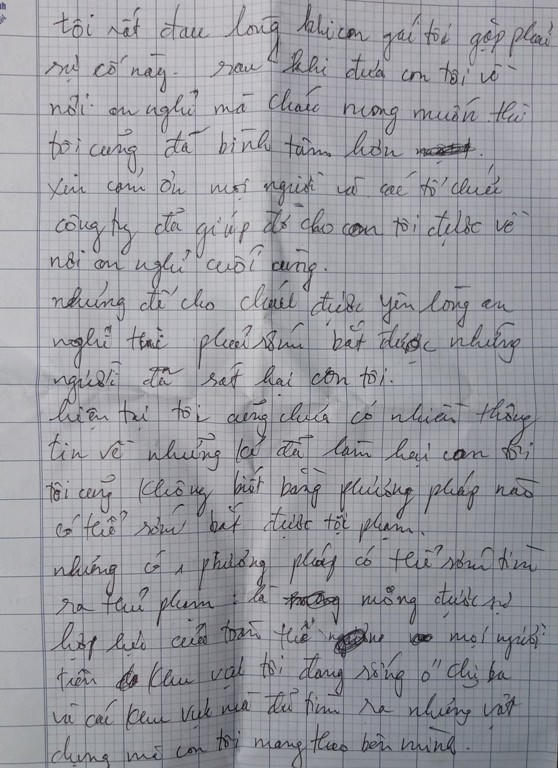 tôi rất đau lòng khi con gái tôi gặp phải
sự cố này. sau khi đưa con tôi về
nơi an nghỉ mà cháu mong muốn thì
tôi cũng đã bình tâm hơn
xin cảm ơn mọi người và các tổ chức
công ty đã giúp đỡ cho con tôi được về
nơi an nghỉ cuối cùng.
nhưng để cho cháu được yên lòng an
nghỉ thì phải sớm bắt được những
người đã sát hại con tôi.
hiện tại tôi cũng chưa có nhiều thông
tin về những kẻ đã làm hại con tôi
tôi cũng không biết bằng phương pháp nào
có thể sớm bắt được tội phạm.
nhưng có 1 phương pháp có thể sớm tìm
ra thủ phạm: là mong được sự
hợp lực của toàn thể mọi người
trên khu vực tôi đang sống ở chiba
và các khu vực mà để tìm ra những vật
dụng mà con tôi mang theo bên mình.